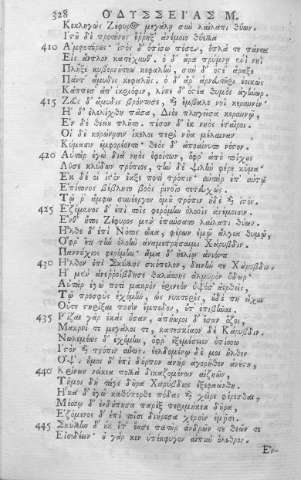 328 ΟΔΥΣΣΕΊΑΣ Μ.
Κεκληγὼς Ζέφυρος μεγάλῃ σὺν λαίλαπι θύων·
Ἱστοῦ δὲ προτόνους ἔρρηξ' ἀνέμοιο θύελλα
410 Ἀμφοτέρους· ἱστὸς δ' ὀπίσω πέσεν, ὅπλα τε πάντα
Εἰς ἄντλον κατέχυνθ'· ὁ δ' ἄρα πρύμνῃ ἐνὶ νηῒ
Πλῆξε κυβερνήτεω κεφαλὴν, σὺν δ' ὀστέ' ἄραξε
Πάντ' ἄμυδις κεφαλῆς· ὁ δ' ἄρ' ἀρνευτῆρι ἐοικὼς
Κάππεσ' ἀπ' ἰκριόφιν, λίπε δ' ὀστέα θυμὸς ἀγήνωρ.
415 Ζεὺς δ' ἄμυδις βρόντησε, καὶ ἔμβαλε νηῒ κεραυνόν·
Ἡ δ' ἐλελίχθη πᾶσα, Διὸς πληγεῖσα κεραυνῷ,
Ἐν δὲ θεείου πλῆτο, πέσον δ' ἐκ νηὸς ἑταῖροι.
Οἱ δὲ κορώνῃσιν ἴκελοι περὶ νῆα μέλαιναν
Κύμασιν ἐμφορέοντο· θεὸς δ' ἀποαίνυτο νόστον.
420 Αὐτὰρ ἐγὼ διὰ νηὸς ἐφοίτων, ὄφρ' ἀπὸ τοίχους
Λῦσε κλύδων τρόπιος, τὴν δὲ ψιλὴν φέρε κῦμα·
Ἐκ δέ οἱ ἱστὸν ἔαξε ποτὶ τρόπιν· αὐτὰρ ἐπ' αὐτῷ
Ἐπίτονος βέβλητο βοὸς ῥινοῖο τετευχώς·
Τῷ ῥ' ἄμφω συνέεργον ὁμοῦ τρόπιν ἠδὲ καὶ ἱστόν.
425 Ἑζόμενος δ' ἐπὶ τοῖς φερόμην ὀλοοῖς ἀνέμοισιν.
Ἔνθ' ἤτοι Ζέφυρος μὲν ἐπαύσατο λαίλαπι θύων,
Ἦλθε δ' ἐπὶ Νότος ὦκα, φέρων ἐμῷ ἄλγεα θυμῷ,
Ὄφρ' ἔτι τὴν ὀλοὴν ἀναμετρήσαιμι Χάρυβδιν.
Παννύχιος φερόμην· ἅμα δ' ἠελίῳ ἀνιόντι
430 Ἦλθον ἐπὶ Σκύλλης σκόπελον, δεινήν τε Χάρυβδιν.
Ἡ μὲν ἀνερροίβδησε θαλάσσης ἁλμυρὸν ὕδωρ·
Αὐτὰρ ἐγὼ ποτὶ μακρὸν ἐρινεὸν ὑψόσ' ἀερθείς,
Τῷ προσφὺς ἐχόμην, ὡς νυκτερίς, οὐδέ πη εἶχον
Οὔτε στηρίξαι ποσὶν ἔμπεδον, οὔτ' ἐπιβῆναι.
435 Ῥίζαι γὰρ ἑκὰς ἦσαν, ἀπήωροι δ' ἔσαν ὄζοι,
Μακροί τε μεγάλοι τε, κατεσκίαον δὲ Χάρυβδιν.
Νωλεμέως δ' ἐχόμην, ὄφρ' ἐξεμέσειεν ὀπίσσω
Ἱστὸν καὶ τρόπιν αὖτις· ἐελδομένῳ δέ μοι ἦλθεν
Ὄψ'. ἦμος δ' ἐπὶ δόρπον ἀνὴρ ἀγορῆθεν ἀνέστη,
440 Κρίνων νείκεα πολλὰ δικαζομένων αἰζηῶν,
Τῆμος δὴ τάγε δοῦρα Χαρύβδιος ἐξεφαάνθη.
Ἧκα δ' ἐγὼ καθύπερθε πόδας καὶ χεῖρε φέρεσθαι,
Μέσσῳ δ' ἐνδούπησα παρὲξ περιμήκεα δοῦρα,
Ἑζόμενος δ' ἐπὶ τοῖσι διήρεσα χερσὶν ἐμῇσι.
445 Σκύλλην δ' οὐκ ἔτ' ἔασε πατὴρ ἀνδρῶν τε θεῶν τε
Εἰσιδέειν· οὐ γάρ κεν ὑπέκφυγον αἰπὺν ὄλεθρον.
Ἐν-